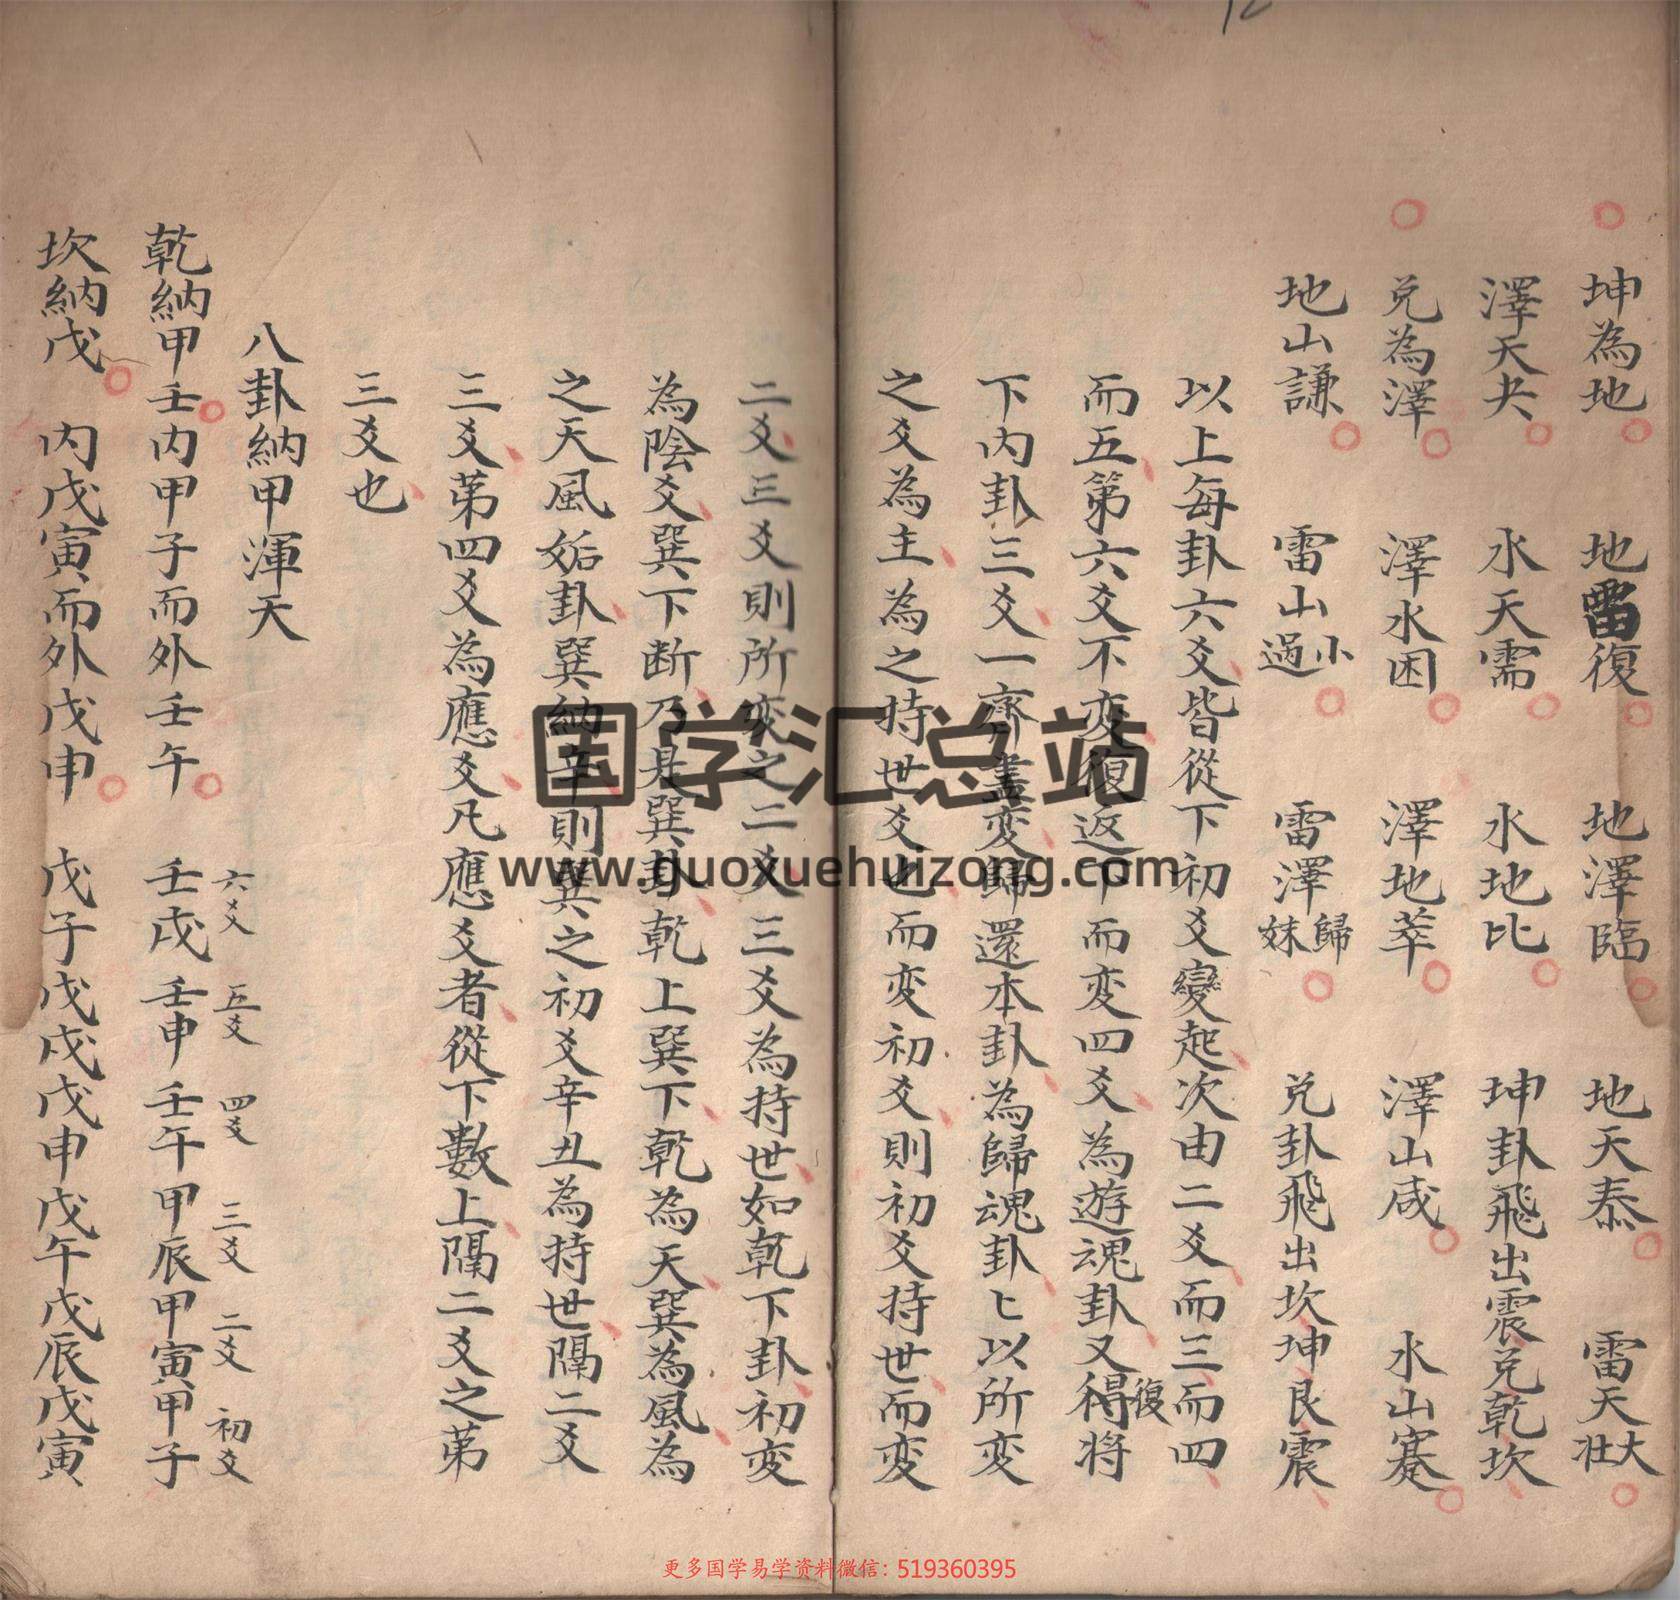 12
坤為地 地雷復 地澤臨 地天泰 雷天大壯
澤天夬 水天需 水地比 坤卦飛出震兌乾坎
兌為澤 澤水困 澤地萃 澤山咸 水山蹇
地山謙 雷山小過 雷澤歸妹 兌卦飛出坎坤艮震
以上每卦六爻皆從下初爻變起次由二爻而三而四
而五第六爻不变復返下而变四爻為遊魂卦又復得将
下内卦三爻一齊盡变歸還本卦為歸魂卦匕以所变
之爻為主為之持世爻也而变初爻則初爻持世而变
二爻三爻則所变之二爻三爻為持世如乾下卦初变
為陰爻巽下断乃是巽卦乾上巽下乾為天巽為風為
之天風姤卦巽納辛則巽之初爻辛丑為持世隔二爻
三爻第四爻為應爻凡應爻者從下數上隔二爻之第
三爻也
八卦納甲渾天
六爻 五爻 四爻 三爻 二爻 初爻
乾納甲壬内甲子而外壬午 壬戌壬申壬午甲辰甲寅甲子
坎納戊 内戊寅而外戊申 戊子戊戌戊申戊午戊辰戊寅
国学汇总站
www.guoxuehuizong.com
更多国学易学资料微信：519360395